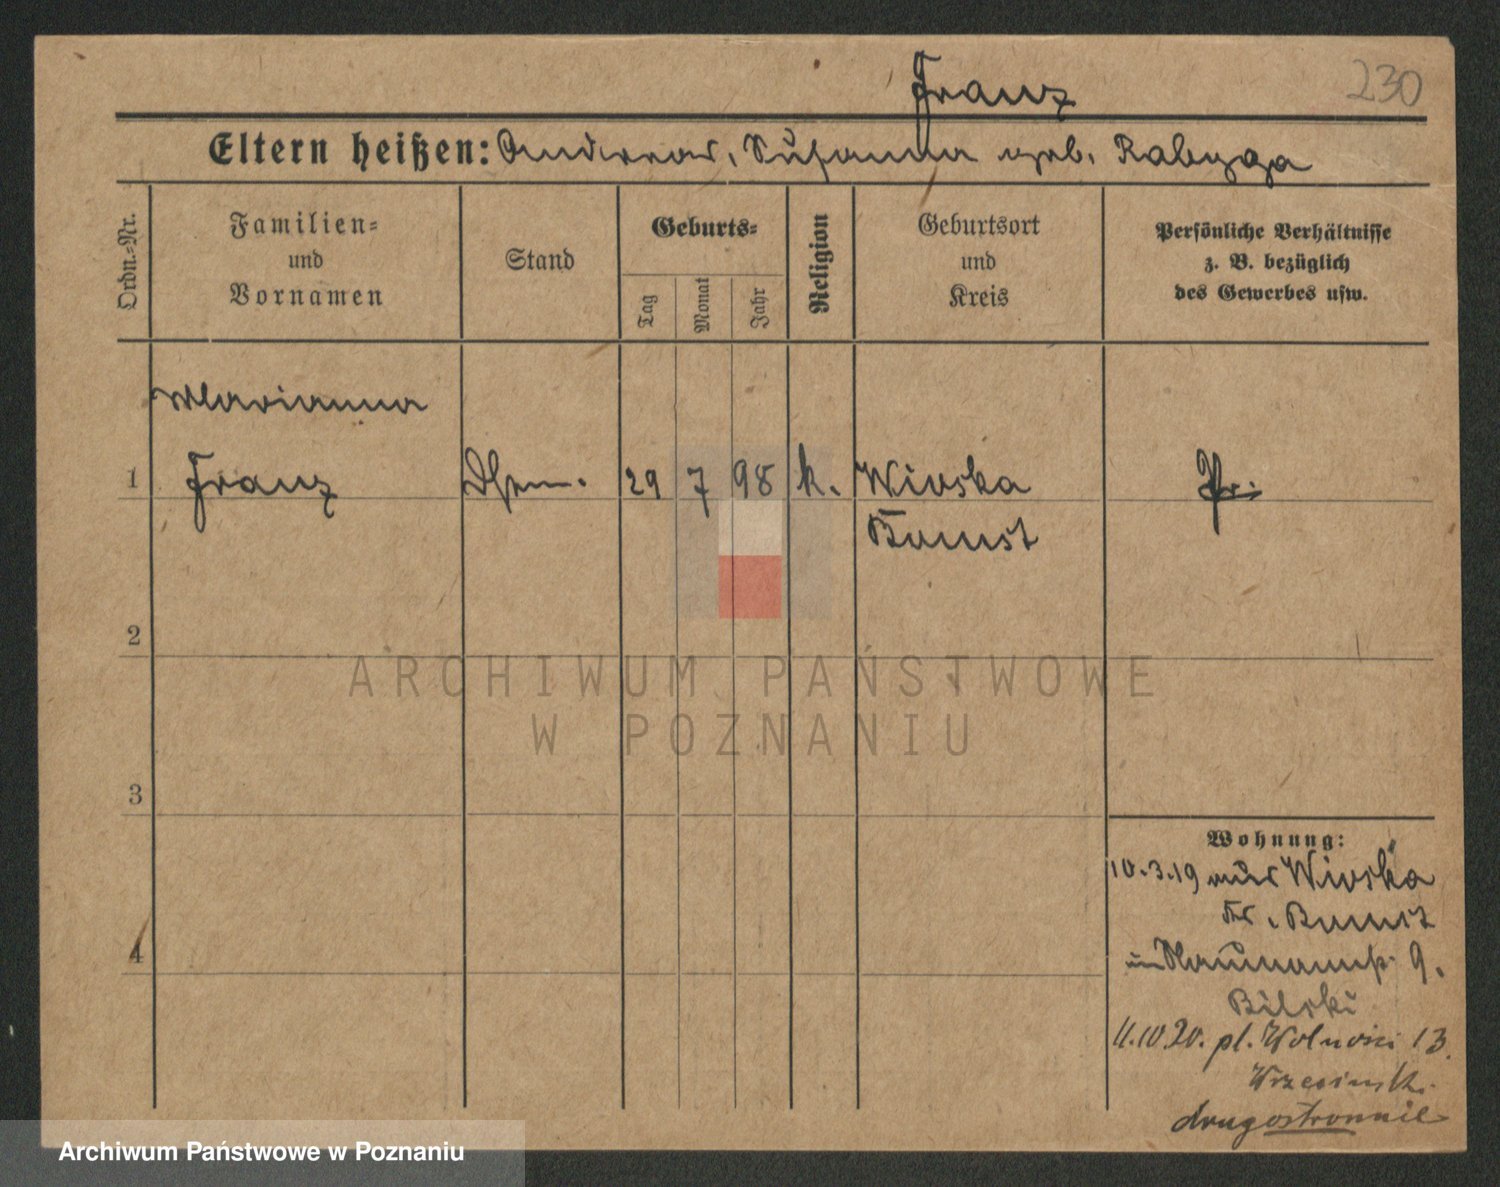 Franz 230
Eltern heißen: Andreas, Susanna geb. Rabyga
Ordn.-Nr.
Familien-
und
Vornamen
Stand
Geburts-
Tag
Monat
Jahr
Religion
Geburtsort
und
Kreis
Persönliche Verhältnisse
z. B. bezüglich
des Gewerbes usw.
Marianna
1 Franz 29 7 98 k. Wioska
Bomst
2
ARCHIWUM PAŃSTWOWE
W POZNANIU
3
Wohnung:
10.3.19 aus Wioska
Kr. Bomst
in Naumannstr. 9.
Bilski
11.10.20. pl. Wolności 13.
drugostronnie
4
Archiwum Państwowe w Poznaniu